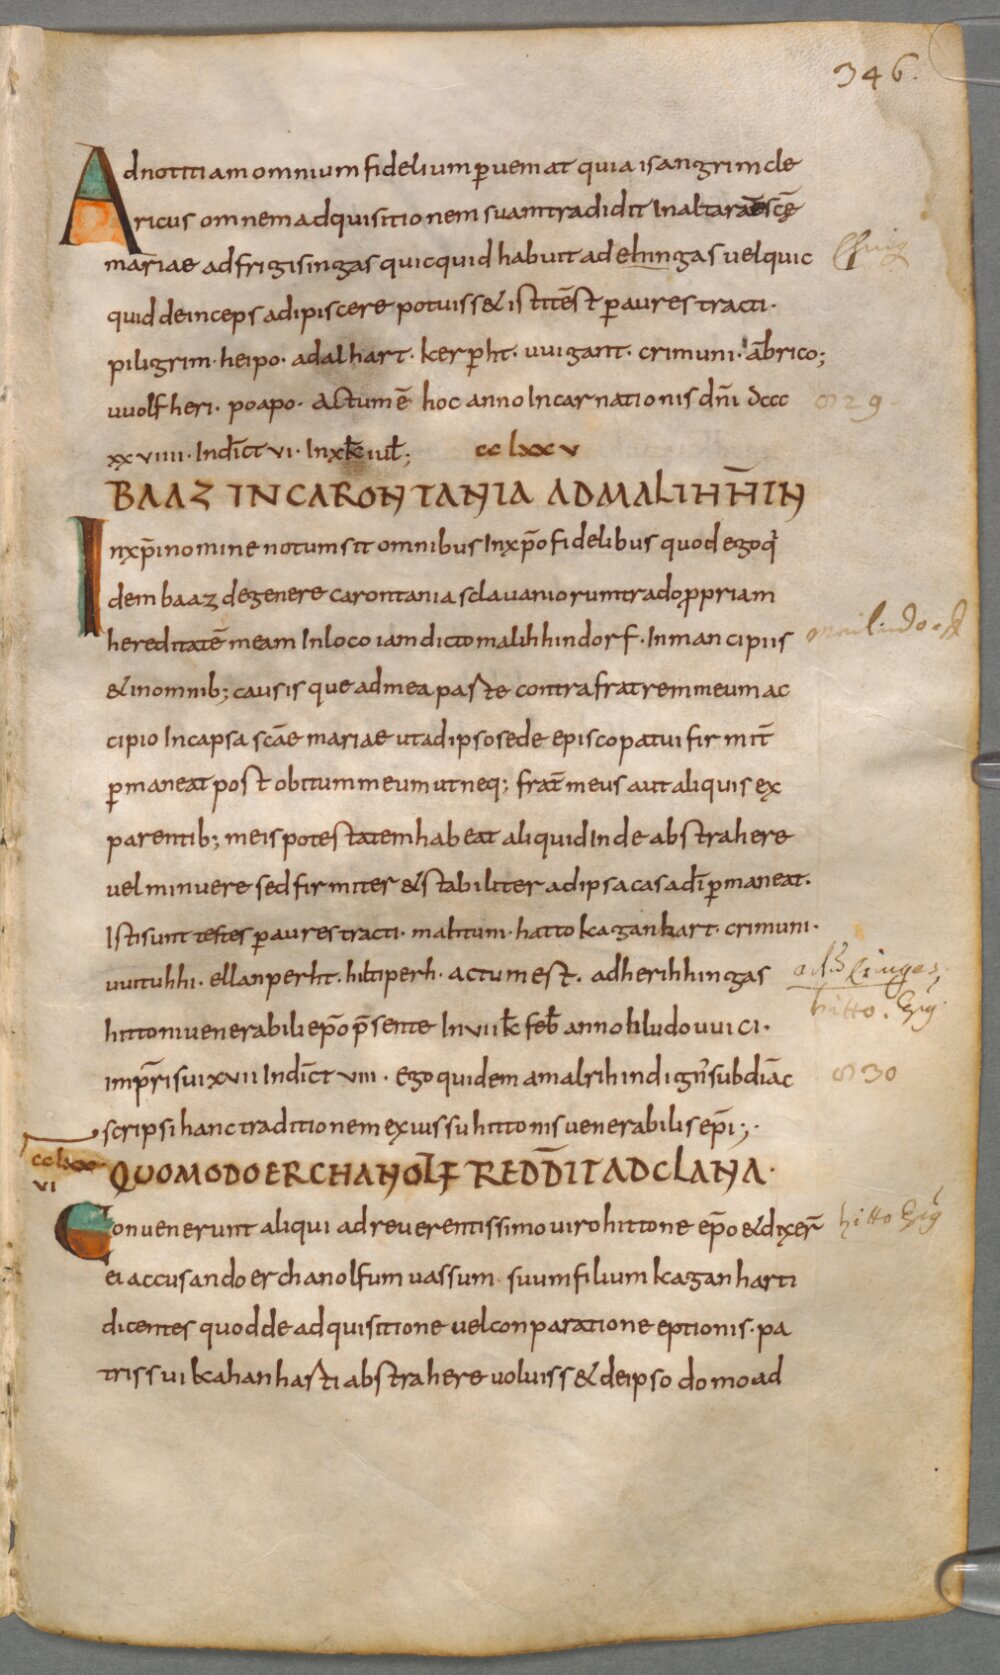 346.
Ad notitiam omnium fidelium ꝑueniat quia isangrim cle
ricus omnem adquisitionem suam tradidit In altarae scē
mariae ad frigisingas quicquid habuit ad ehingas uel quic
quid deinceps adipiscere potuiss& isti tēst ꝑ aures tracti·
piligrim· heipo· adalhart· kerꝑht· uuigant· crimuni· ābrico;
uuolfheri· poapo· Actum ē hoc anno Incarnationis dn̄i dccc
829.
xxviiii· Indīct vi·
cclxxv
BAAZ IN CARONTANIA AD MALIHH̄IN
In xp̄i nomine notum sit omnibus In xp̄o fidelibus quod ego q'
dem baaz de genere carontania sclauaniorum trado ꝓpriam
hereditatē meam In loco iam dicto malihhindorf· In mancipiis
& in omnib; causis que ad mea paste contra fratrem meum ac
cipio In capsa scāe mariae ut ad ipso sede episcopatui firmit̄
ꝑmaneat post obitum meum ut neq; frat̄ meus aut aliquis ex
parentib; meis potestatem habeat aliquid Inde abstrahere
uel minuere sed firmiter & stabiliter ad ipsa casa dī ꝑmaneat·
Isti sunt testes ꝑ aures tracti· mahtuni· hatto kaganhart· crimuni·
uuituhhi· ellanperht· hiltiperh· actum est· ad herihhingas
hittoni uenerabili ep̄o p̄sente In vii k̄ feb̄ anno hludouuici·
hitto. Epis
imp̄ri sui xvii Indīct viii· Ego quidem amalrih indign' subdiāc
830
scripsi hanc traditionem ex iussu hittonis uenerabilis ep̄i;·
cclxx
vi
QUOMODO ERCHANOLF REDD̄IT AD CLANA·
Conuenerunt aliqui ad reuerentissimo uiro hittone ep̄o & dixer̄
hitto Epis
ei accusando erchanolfum uassum suum filium kaganharti
dicentes quod de adquisitione uel conparatione eptionis· pa
tris sui kahanhasti abstrahere uoluiss& de ipso domo ad